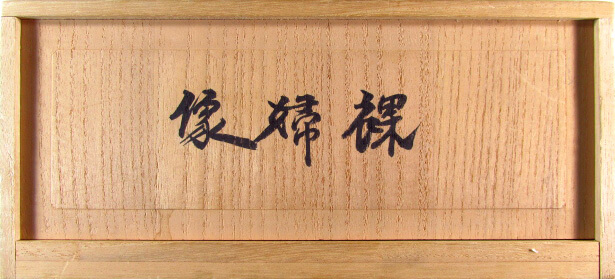 裸婦像